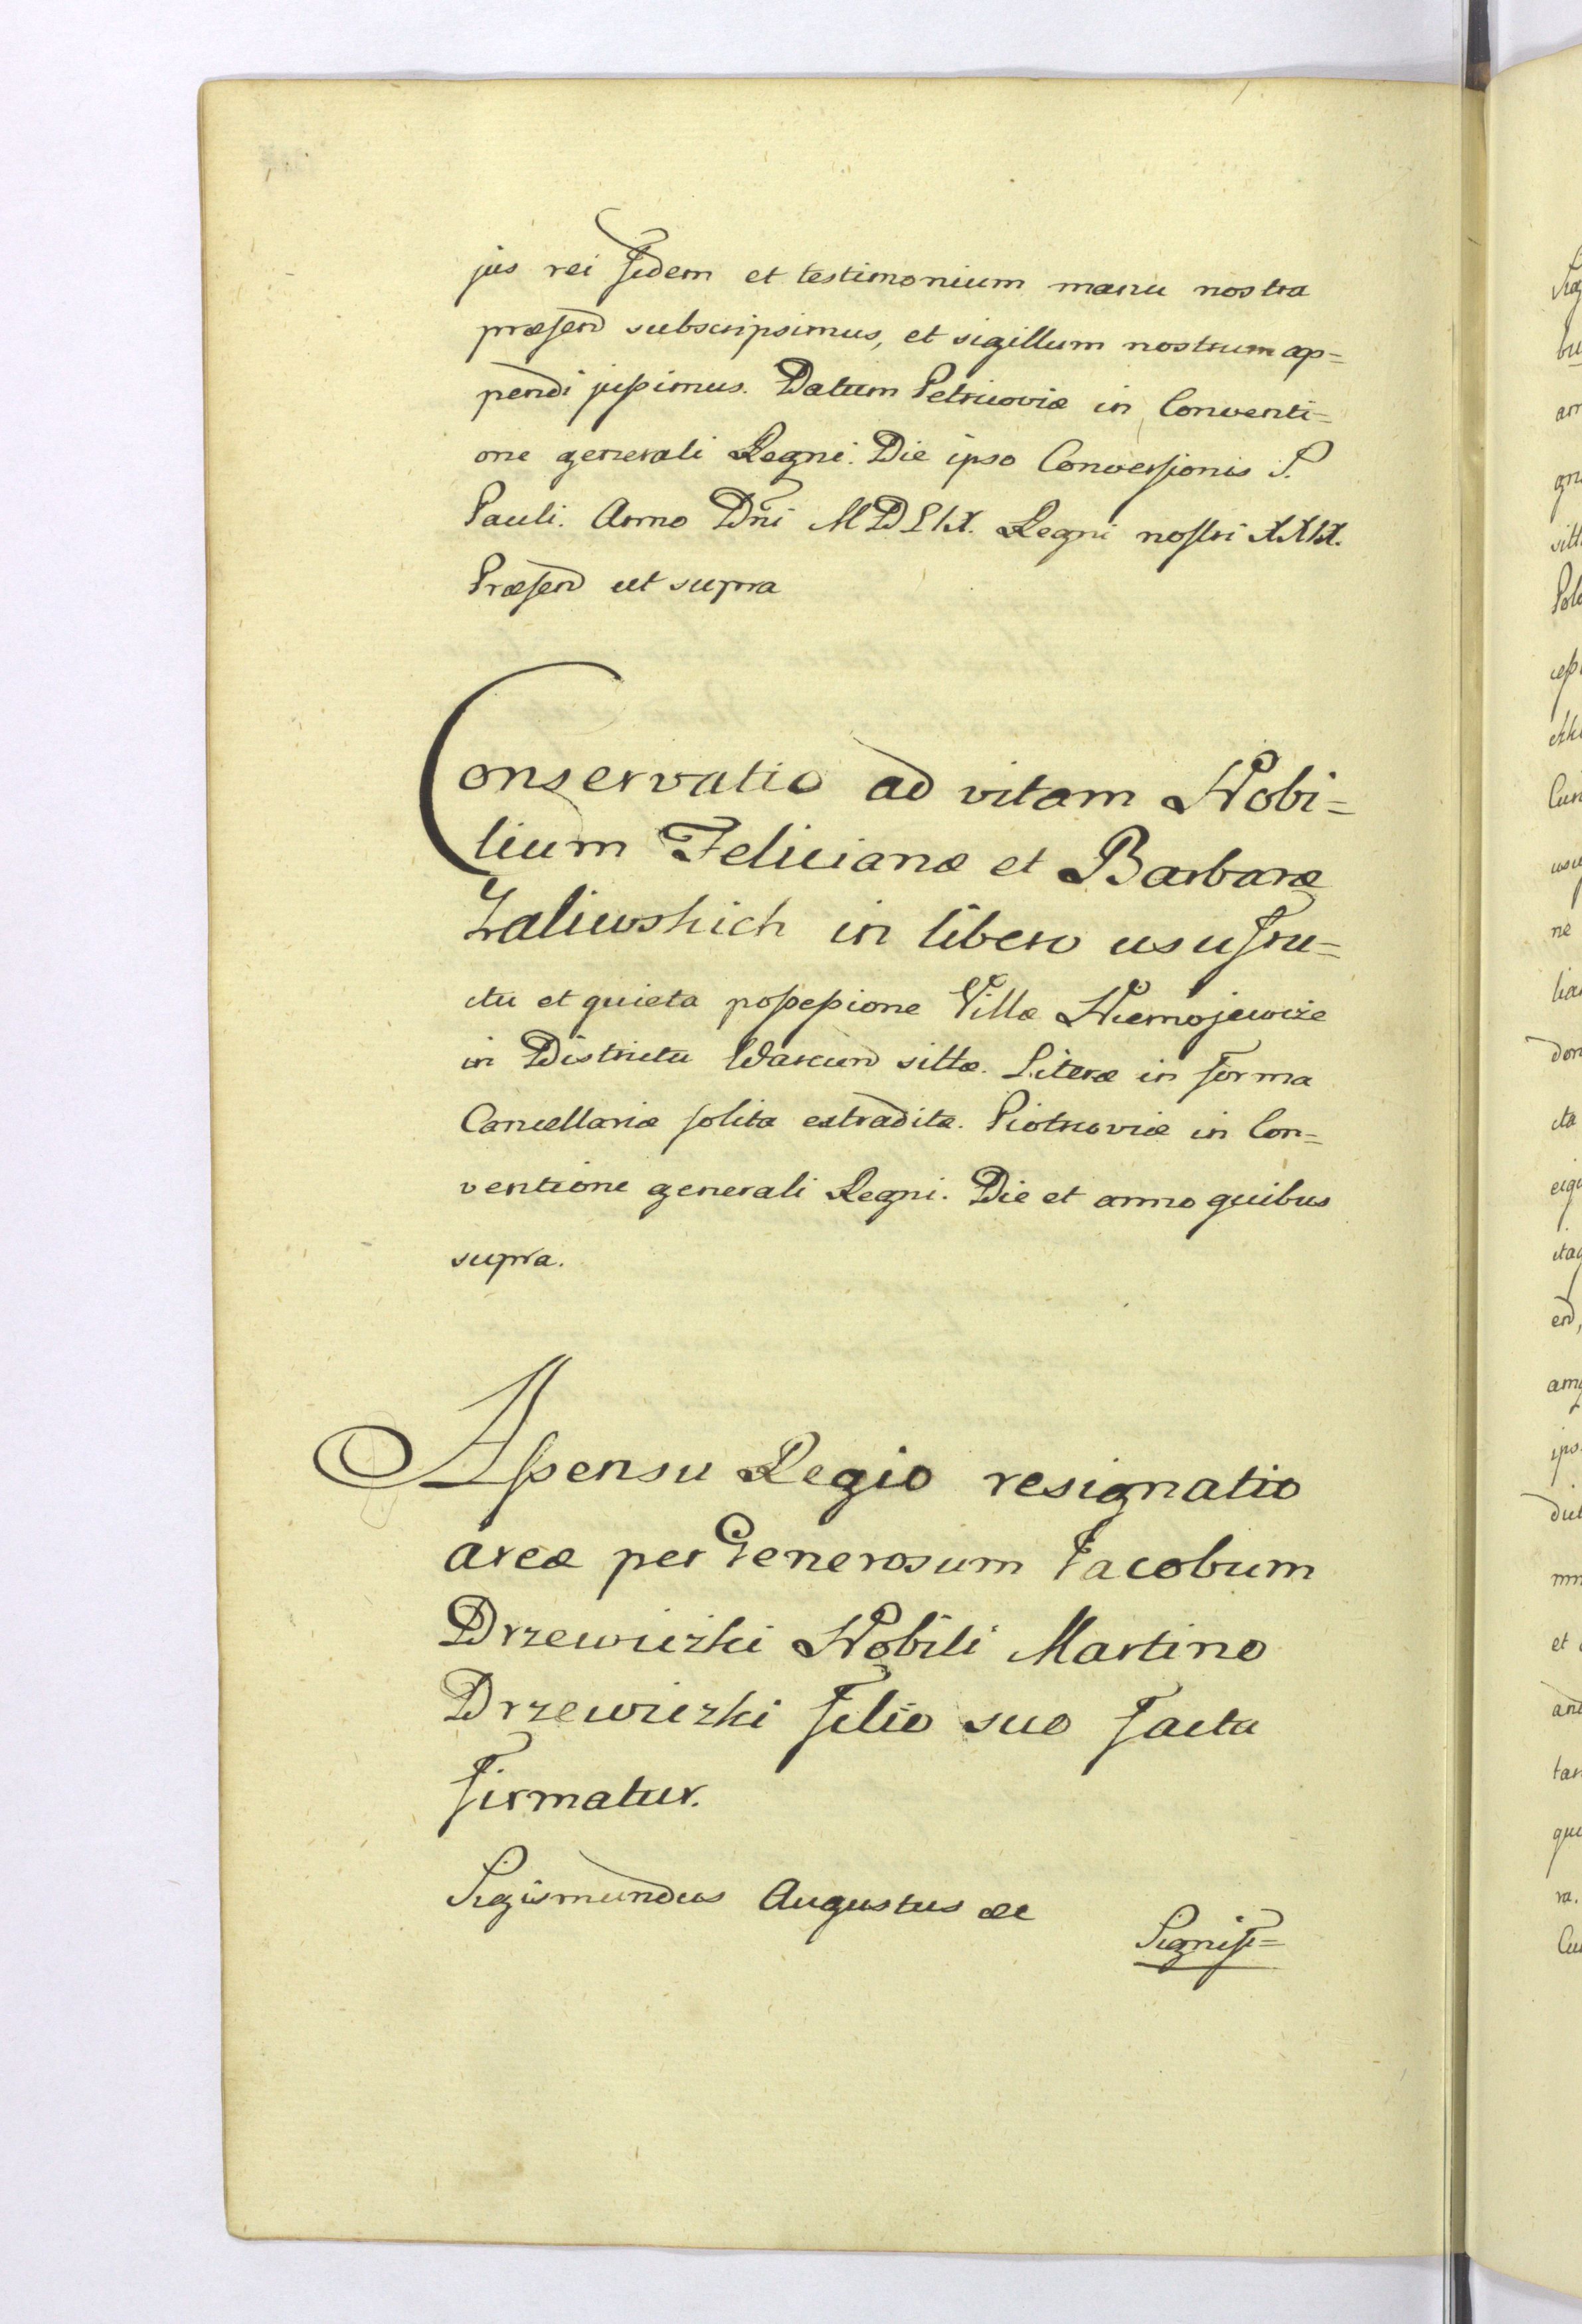 jus rei fidem et testimonium manu nostra
præsend subscripsimus, et sigillum nostrum ap=
pendi jussimus. Datum Petricoviæ in Conventi=
one generali Regni. Die ipso Conversionis S.
Pauli. Anno Dni MDLIX. Regni nostri XXIX.
Præsend ut supra
Conservatio ad vitam Nobi=
lium Feliciana et Barbaræ
Zaliwskich in libero usufru=
ctu et quieta possessione Villæ Niemojewize
in Districtu Warcien sittæ. Literæ in forma
Cancellariæ solita extraditæ. Piotrcoviæ in Con=
ventione generali Regni. Die et anno quibus
supra.
Assensu Regio resignatio
areæ per Generosum Jacobum
Drzewiczki Nobili Martino
Drzewiczki filio suo facta
firmatur.
Sigismundus Augustus &c
Signifi=